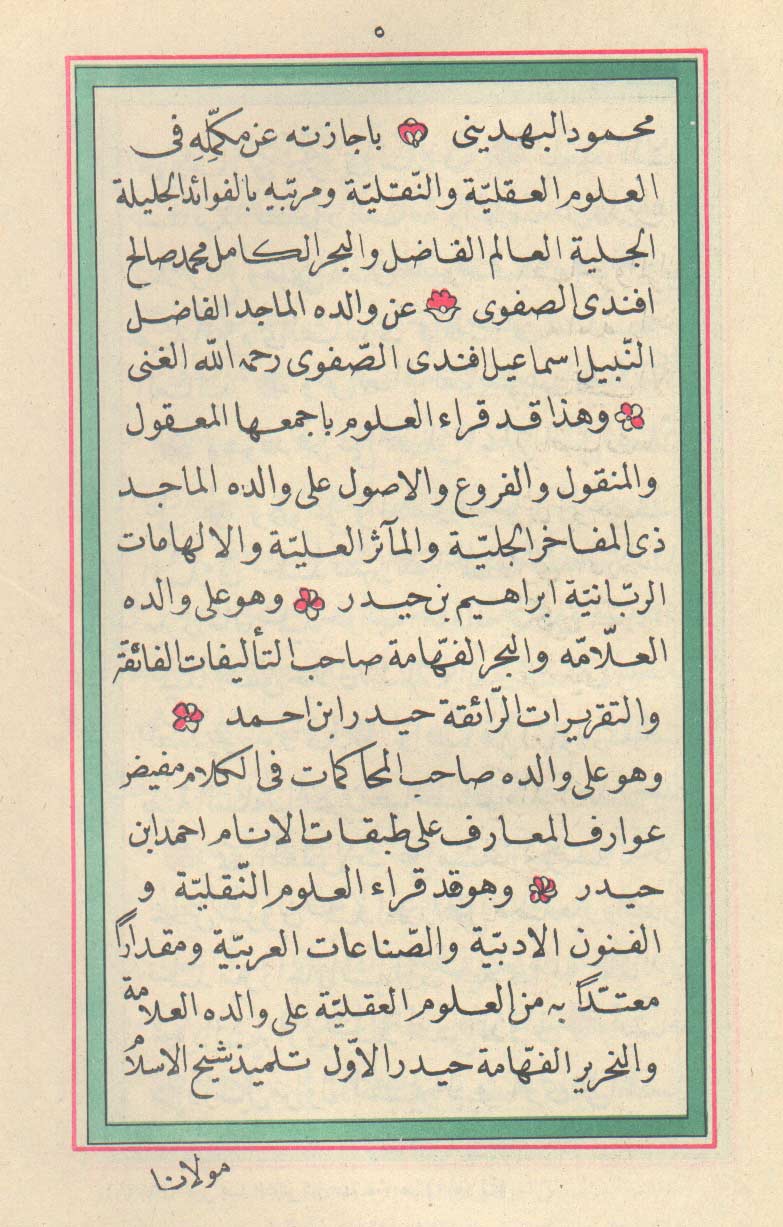 ٥
محمود البهدينى باجازته عن مكمّلِهِ فى
العلوم العقليّة والنّقليّة ومربّيه بالفوائد الجليلة
الجلية العالم الفاضل والبحر الكامل محمد صالح
افندى الصفوى عن والده الماجد الفاضل
النّبيل اسماعيل افندى الصّفوى رحمه الله الغنى
وهذا قد قراء العلوم باجمعها المعقول
والمنقول والفروع والاصول على والده الماجد
ذى المفاخر الجليّة والمآثر العليّة والالهامات
الربّانيّة ابراهيم بن حيدر وهو على والده
العلّامه والبحر الفهّامة صاحب التأليفات الفائقة
والتقريرات الرّائقة حيدر ابن احمد
وهو على والده صاحب المحاكمات فى الكلام مفيض
عوارف المعارف على طبقات الانام احمد ابن
حيدر وهو قد قراء العلوم النّقليّة و
الفنون الادبيّة والصّناعات العربيّة ومقداراً
معتدّاً به من العلوم العقليّة على والده العلامة
والنحرير الفهّامة حيدر الاوّل تلميذ شيخ الاسلام
مولانا